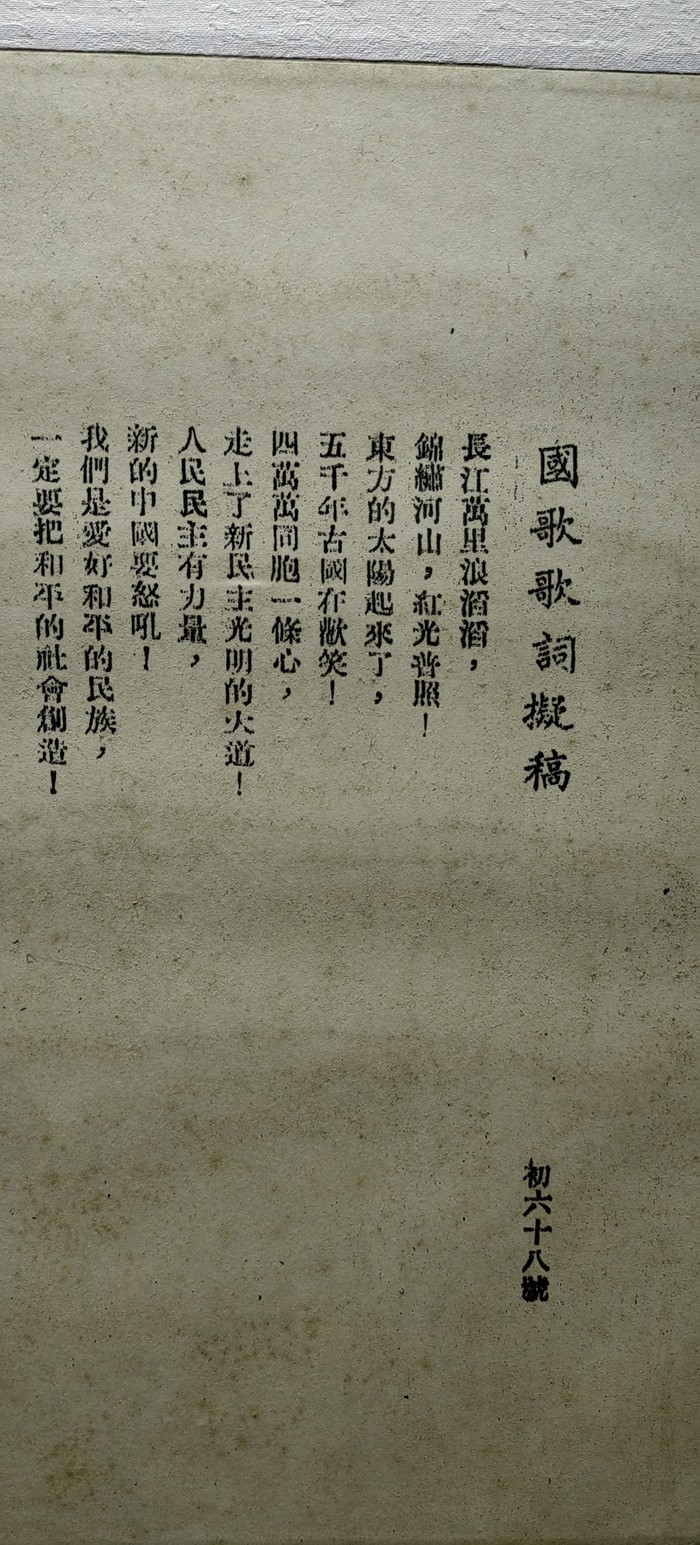 國歌歌詞擬稿
初六十八號
長江萬里浪滔滔，
錦繡河山，紅光普照！
東方的太陽起來了，
五千年古國在歡笑！
四萬萬同胞一條心，
走上了新民主光明的大道！
人民民主有力量，
新的中國要怒吼！
我們是愛好和平的民族，
一定要把和平的社會創造！